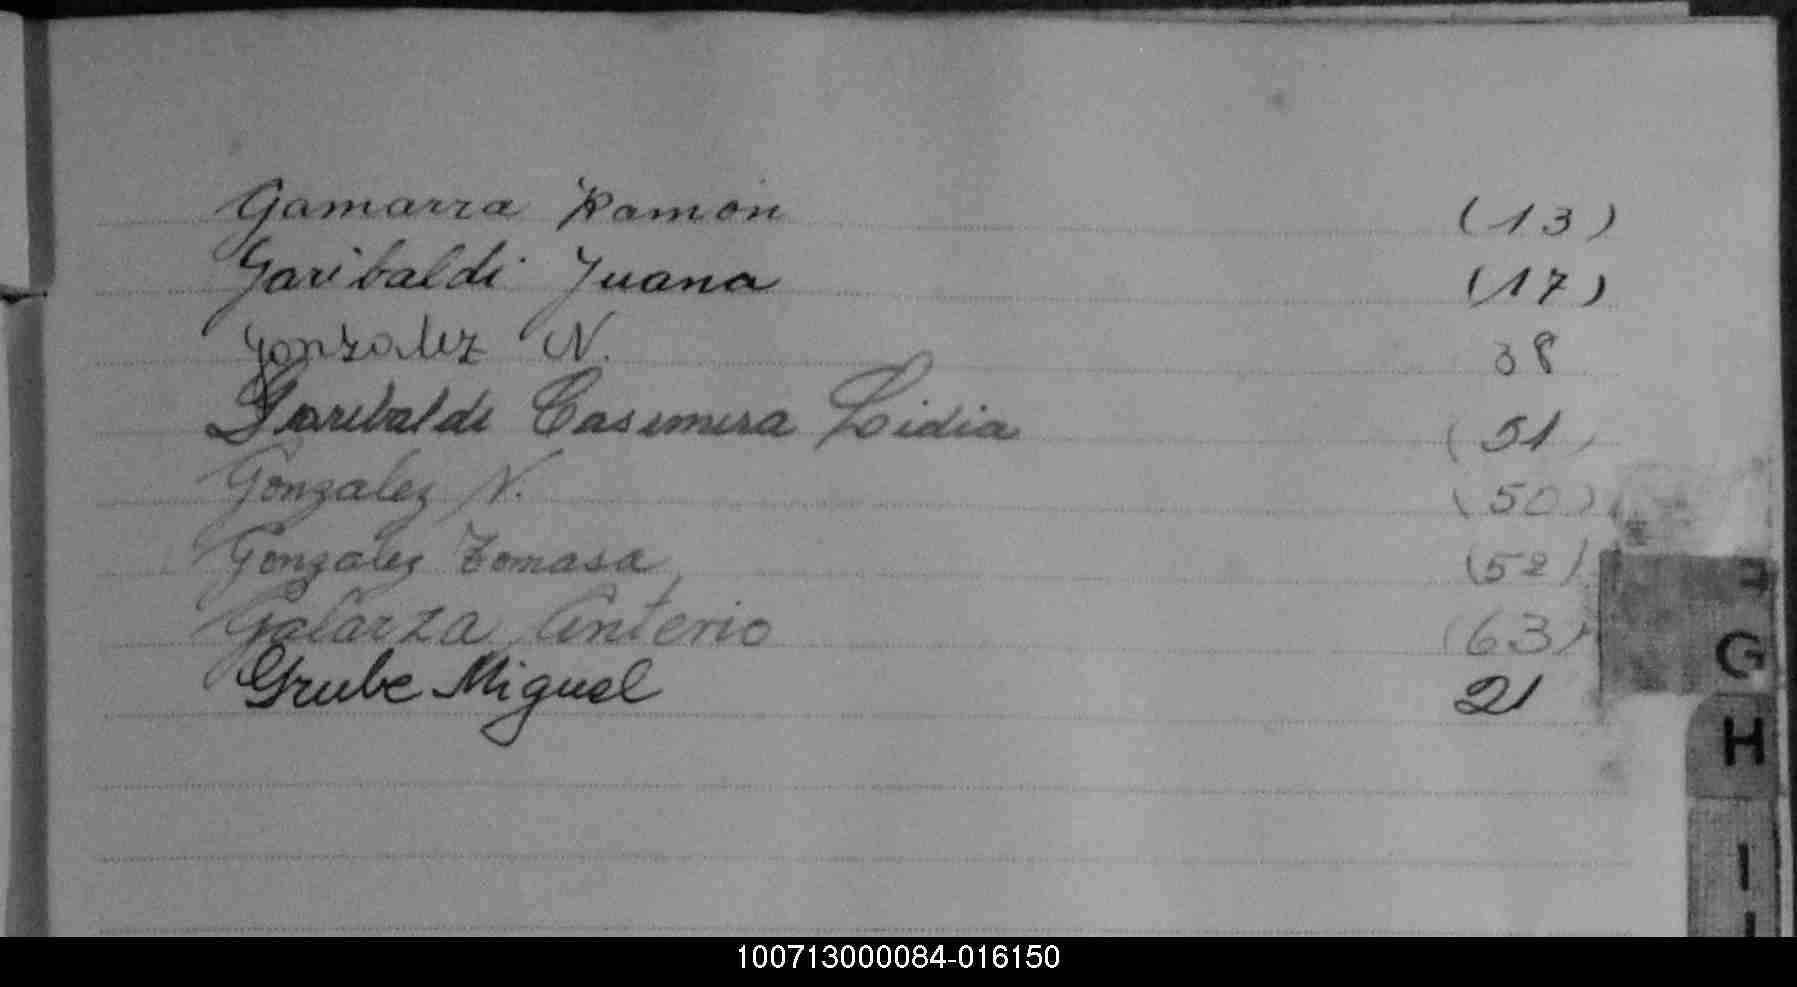 Gamarra Ramón (13)
Garibaldi Juana (17)
Gonzalez N. 38
Garibaldi Casimira Lidia (51)
Gonzalez N. (50)
Gonzalez Tomasa (52)
Galarza Anterio (63)
Grube Miguel 21
G
H
I
100713000084-016150